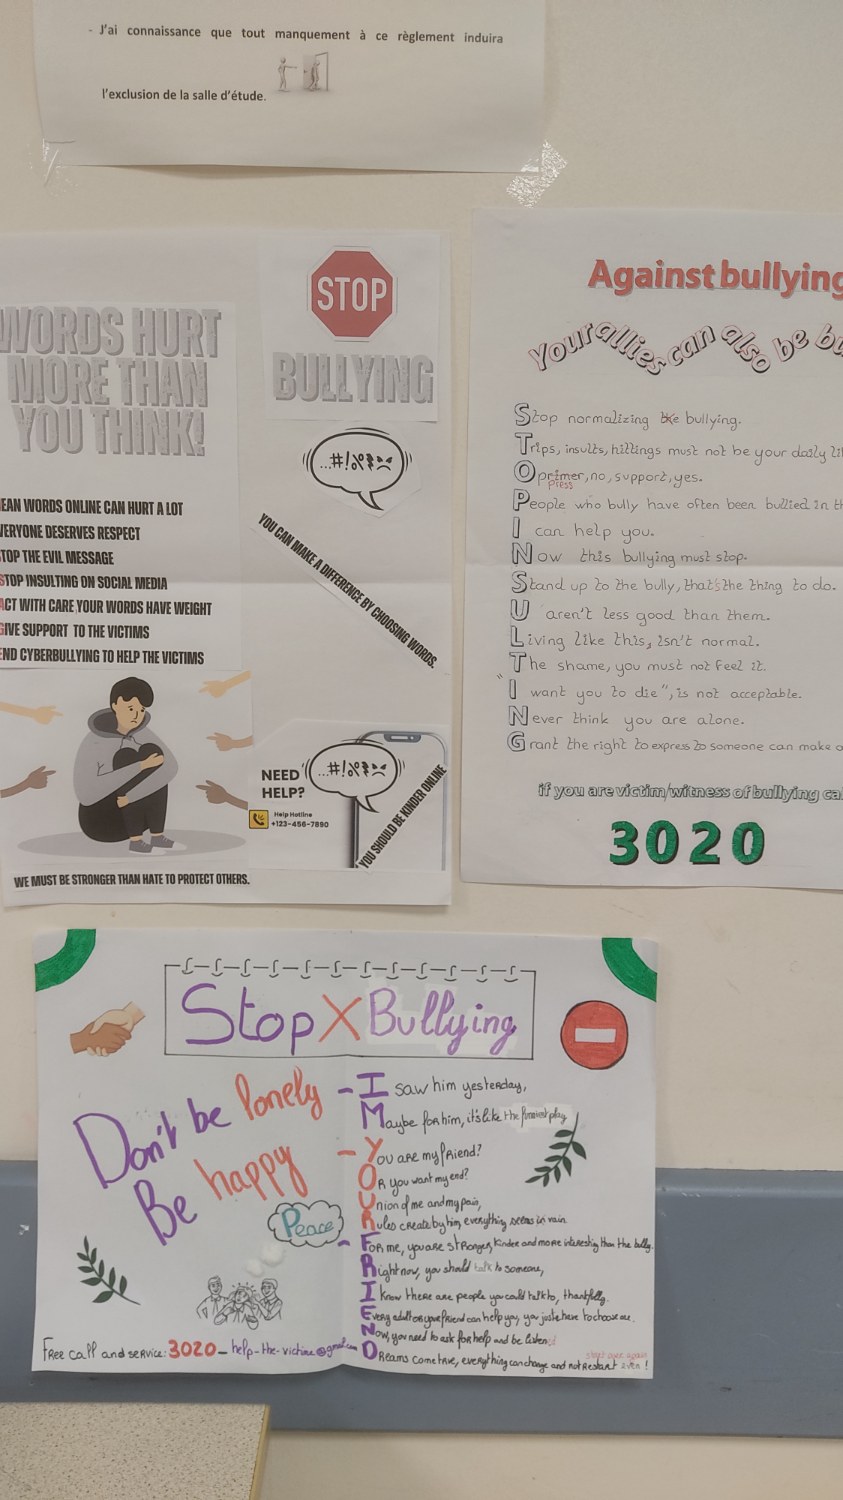 - J'ai connaissance que tout manquement à ce règlement induira
l'exclusion de la salle d'étude.
WORDS HURT
MORE THAN
YOU THINK!
STOP
BULLYING
...#!%
EAN WORDS ONLINE CAN HURT A LOT
VERYONE DESERVES RESPECT
TOP THE EVIL MESSAGE
STOP INSULTING ON SOCIAL MEDIA
ACT WITH CARE YOUR WORDS HAVE WEIGHT
GIVE SUPPORT TO THE VICTIMS
END CYBERBULLYING TO HELP THE VICTIMS
YOU CAN MAKE A DIFFERENCE BY CHOOSING WORDS.
NEED
HELP?
...#!%
Help Hotline
+123-456-7890
YOU SHOULD BE KINDER ONLINE
WE MUST BE STRONGER THAN HATE TO PROTECT OTHERS.
Against bullying
Your allies can also be bu
Stop normalizing bullying.
Trips, insults, hittings must not be your daily li
Opprimer, no, support, yes.
press
People who bully have often been bullied in th
I can help you.
Now this bullying must stop.
Stand up to the bully, that's the thing to do.
U aren't less good than them.
Living like this, isn't normal.
The shame, you must not feel it.
"I want you to die", is not acceptable.
Never think you are alone.
Grant the right to express to someone can make a
if you are victim/witness of bullying ca
3020
Stop X Bullying
Don't be lonely
Be happy
Peace
- I saw him yesterday,
Maybe for him, it's like the funniest play
- You are my friend?
Or you want my end?
Union of me and my pain,
Rules create by him, everything seems in vain
- For me, you are stronger, kinder and more interesting than the bully.
Right now, you should talk to someone,
I know there are people you could talk to, thankfully.
Every adult or your friend can help you, you just have to choose one.
Now, you need to ask for help and be listened
start over again
Dreams come true, everything can change and not restart even!
Free call and service: 3020 - help-the-victime@gmail.com